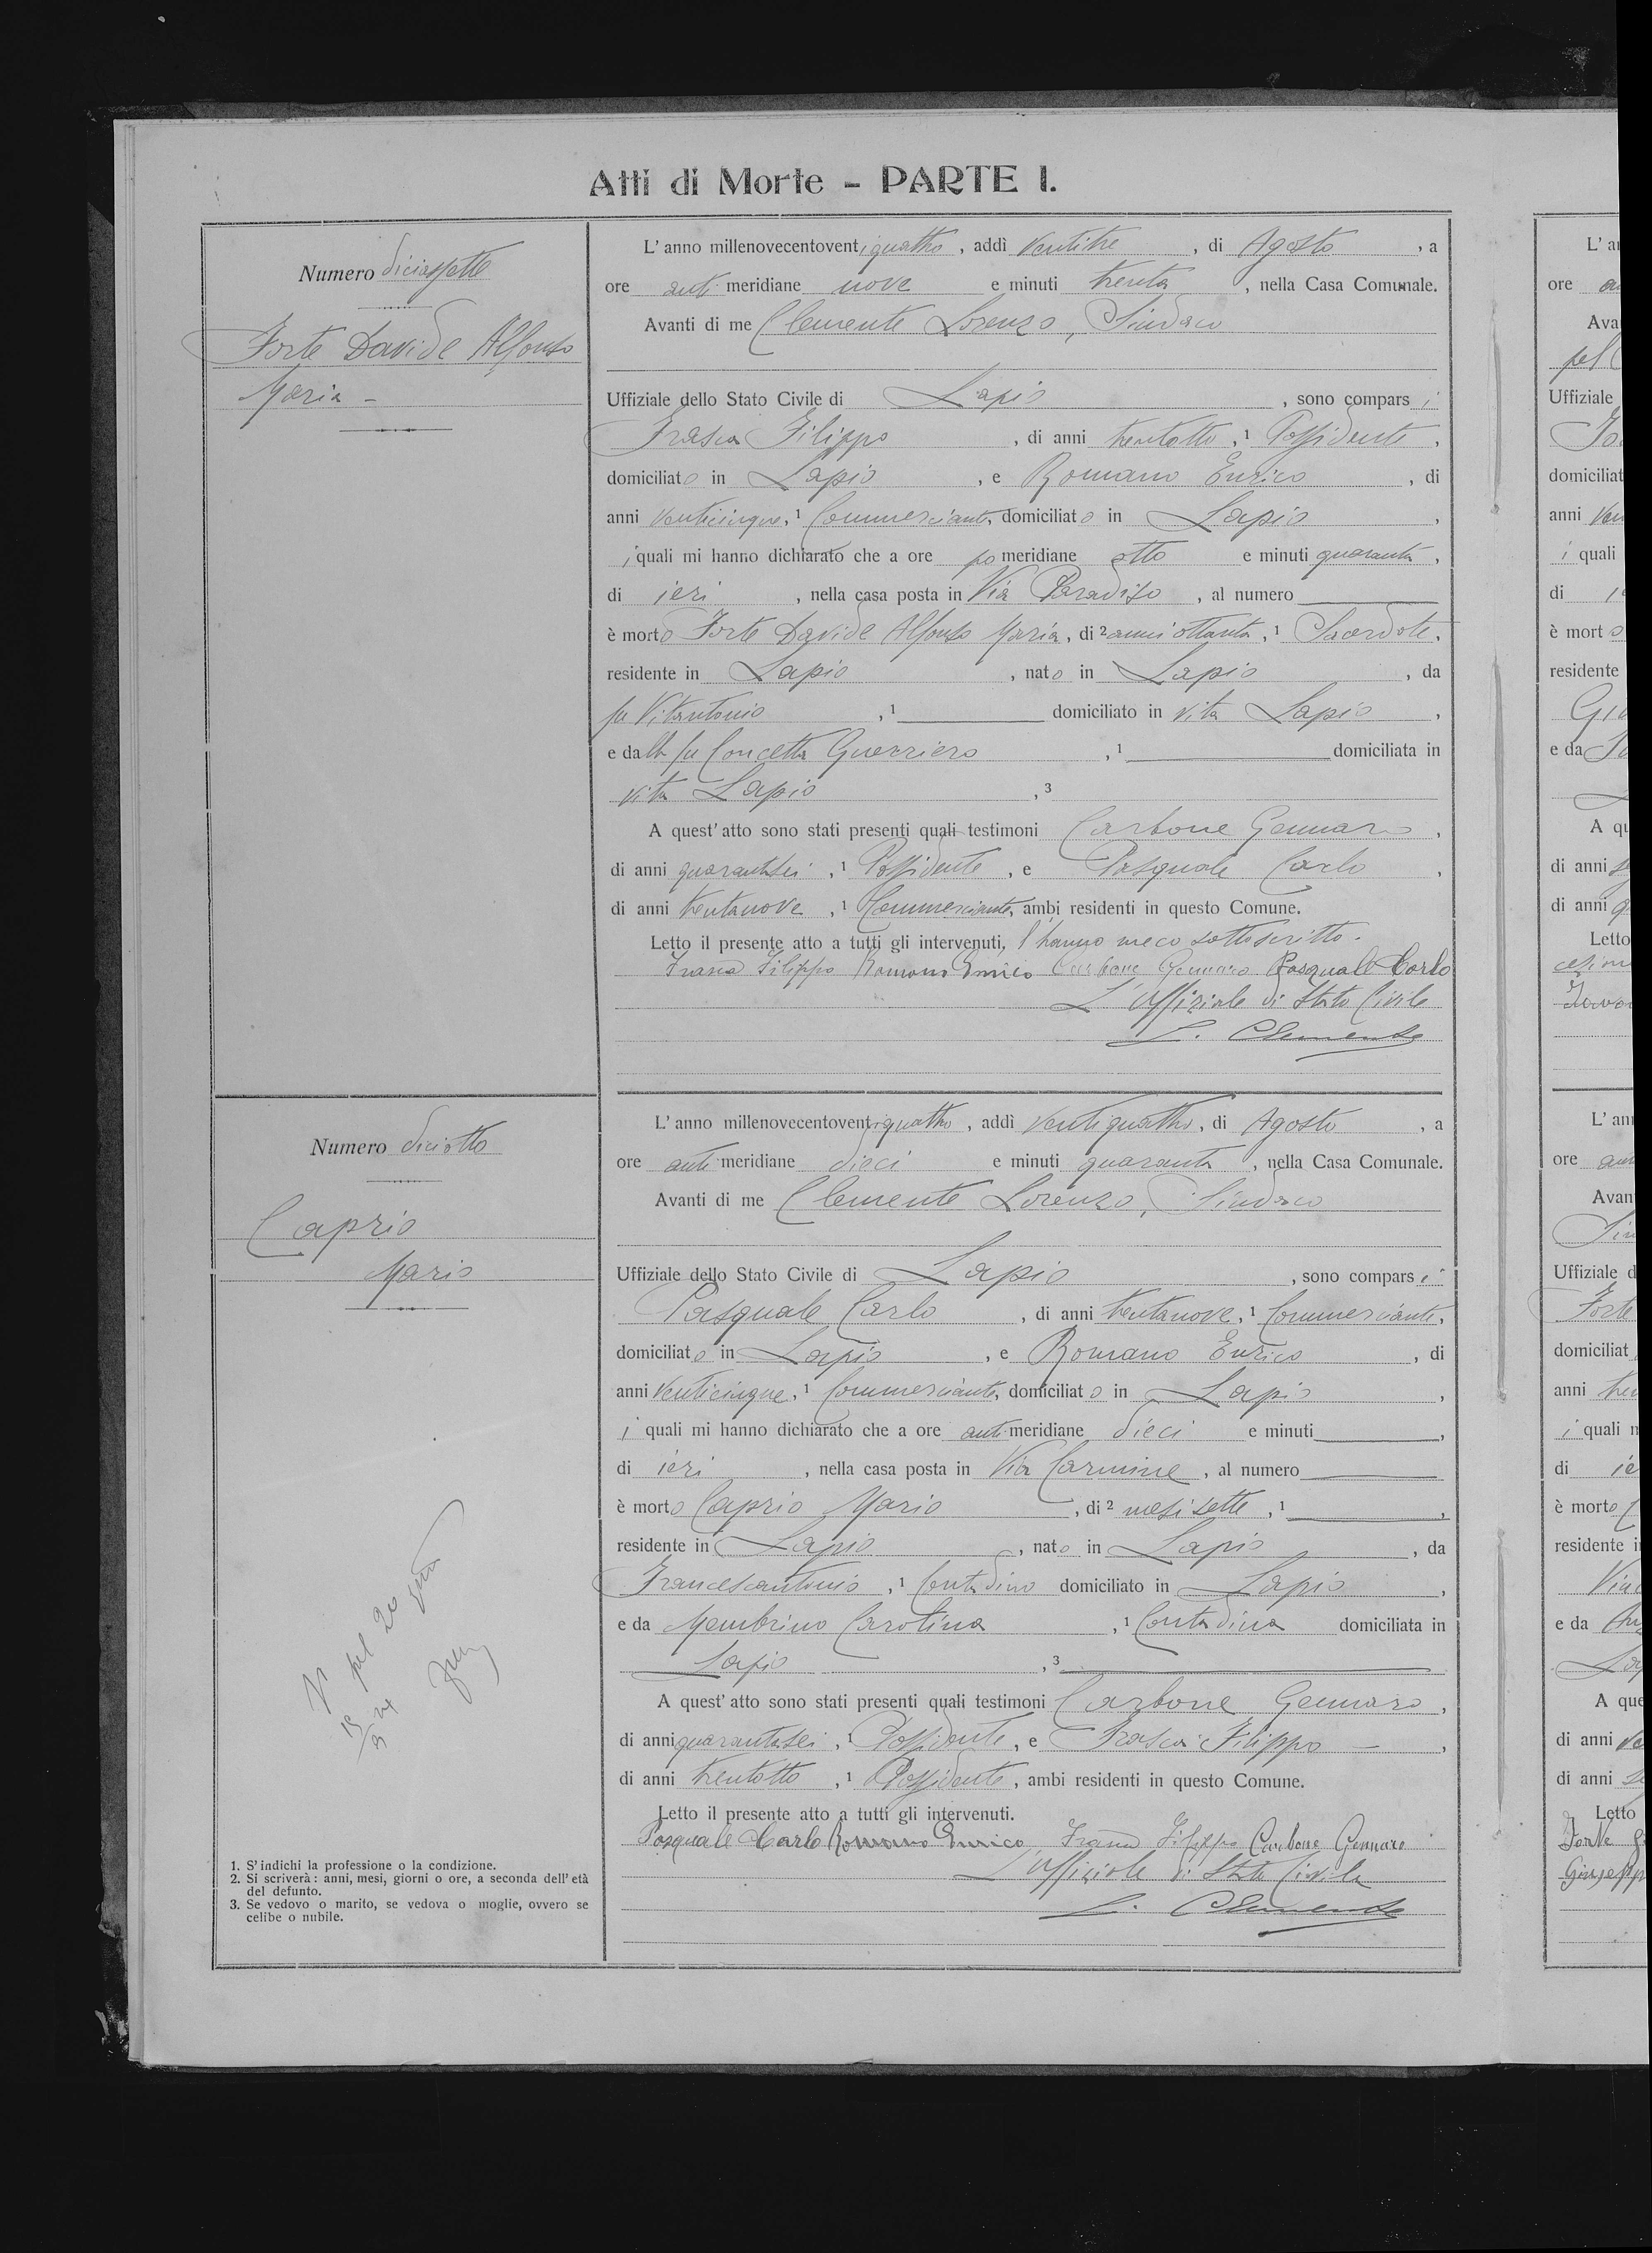 Atti di Morte - PARTE I.
Numero diciassette
Forte Davide Alfonso
Maria -
L'anno millenovecentoventiquattro, addì ventitre, di Agosto, a
ore anti meridiane nove e minuti trenta, nella Casa Comunale.
Avanti di me Clemente Lorenzo, Sindaco
Uffiziale dello Stato Civile di Lapio, sono comparsi
Frascia Filippo, di anni trentotto, 1 Possidente,
domiciliato in Lapio, e Romano Enrico, di
anni venticinque, 1 Commerciante, domiciliato in Lapio,
i quali mi hanno dichiarato che a ore pomeridiane otto e minuti quaranta,
di ieri, nella casa posta in Via Paradiso, al numero
è morto Forte Davide Alfonso Maria, di 2 anni ottanta, 1 Sacerdote,
residente in Lapio, nato in Lapio, da
fu Vitantonio, 1 domiciliato in vita Lapio,
e dalla fu Concetta Guerriero, 1 domiciliata in
vita Lapio, 3
A quest'atto sono stati presenti quali testimoni Carbone Gennaro,
di anni quarantasei, 1 Possidente, e Pasquale Carlo,
di anni trentanove, 1 Commerciante, ambi residenti in questo Comune.
Letto il presente atto a tutti gli intervenuti, l'hanno meco sottoscritto.
Frascia Filippo Romano Enrico Carbone Gennaro Pasquale Carlo
L'Uffiziale di Stato Civile
L. Clemente
Numero diciotto
Caprio
Mario
L'anno millenovecentoventiquattro, addì ventiquattro, di Agosto, a
ore anti meridiane dieci e minuti quaranta, nella Casa Comunale.
Avanti di me Clemente Lorenzo, Sindaco
Uffiziale dello Stato Civile di Lapio, sono comparsi
Pasquale Carlo, di anni trentanove, 1 Commerciante,
domiciliato in Lapio, e Romano Enrico, di
anni venticinque, 1 Commerciante, domiciliato in Lapio,
i quali mi hanno dichiarato che a ore antimeridiane dieci e minuti,
di ieri, nella casa posta in Via Carmine, al numero
è morto Caprio Mario, di 2 mesi sette, 1,
residente in Lapio, nato in Lapio, da
Francescantonio, 1 Contadino domiciliato in Lapio,
e da Membrino Carolina, 1 Contadina domiciliata in
Lapio, 3
A quest'atto sono stati presenti quali testimoni Carbone Gennaro,
di anni quarantasei, 1 Possidente, e Frascia Filippo -,
di anni trentotto, 1 Possidente, ambi residenti in questo Comune.
Letto il presente atto a tutti gli intervenuti.
Pasquale Carlo Romano Enrico Frascia Filippo Carbone Gennaro
L'Uffiziale di Stato Civile
L. Clemente
1. S'indichi la professione o la condizione.
2. Si scriverà: anni, mesi, giorni o ore, a seconda dell'età
del defunto.
3. Se vedovo o marito, se vedova o moglie, ovvero se
celibe o nubile.